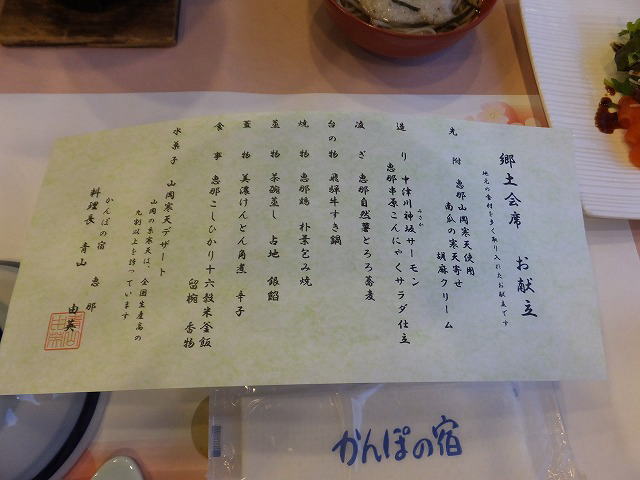 郷土会席　お献立
地元の食材を多く取り入れたお献立です
先附　恵那山岡寒天使用
南瓜の寒天寄せ
胡麻クリーム
造り　中津川神坂サーモン
みさか
恵那串原こんにゃくサラダ仕立
凌ぎ　恵那自然薯とろろ蕎麦
台の物　飛騨牛すき鍋
焼物　恵那鶏　朴葉包み焼
蒸物　茶碗蒸し　占地　銀餡
蓋物　美濃けんとん角煮　辛子
食事　恵那こしひかり十六穀米釜飯
留椀　香物
水菓子　山岡寒天デザート
山岡の糸寒天は、全国生産高の
九割以上を誇っています
かんぽの宿　恵那
料理長　青山　由英
かんぽの宿